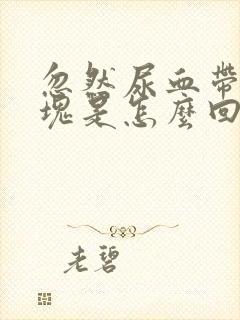 忽然尿血帶
塊是怎麼回
老碧